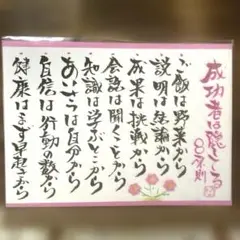 成功者は脳できてる
8原則
ご飯は野菜から
説明は結論から
成果は挑戦から
会話は聞くことから
知識は学ぶことから
あいさつは自分から
自信は行動の数から
健康はまず早起きから